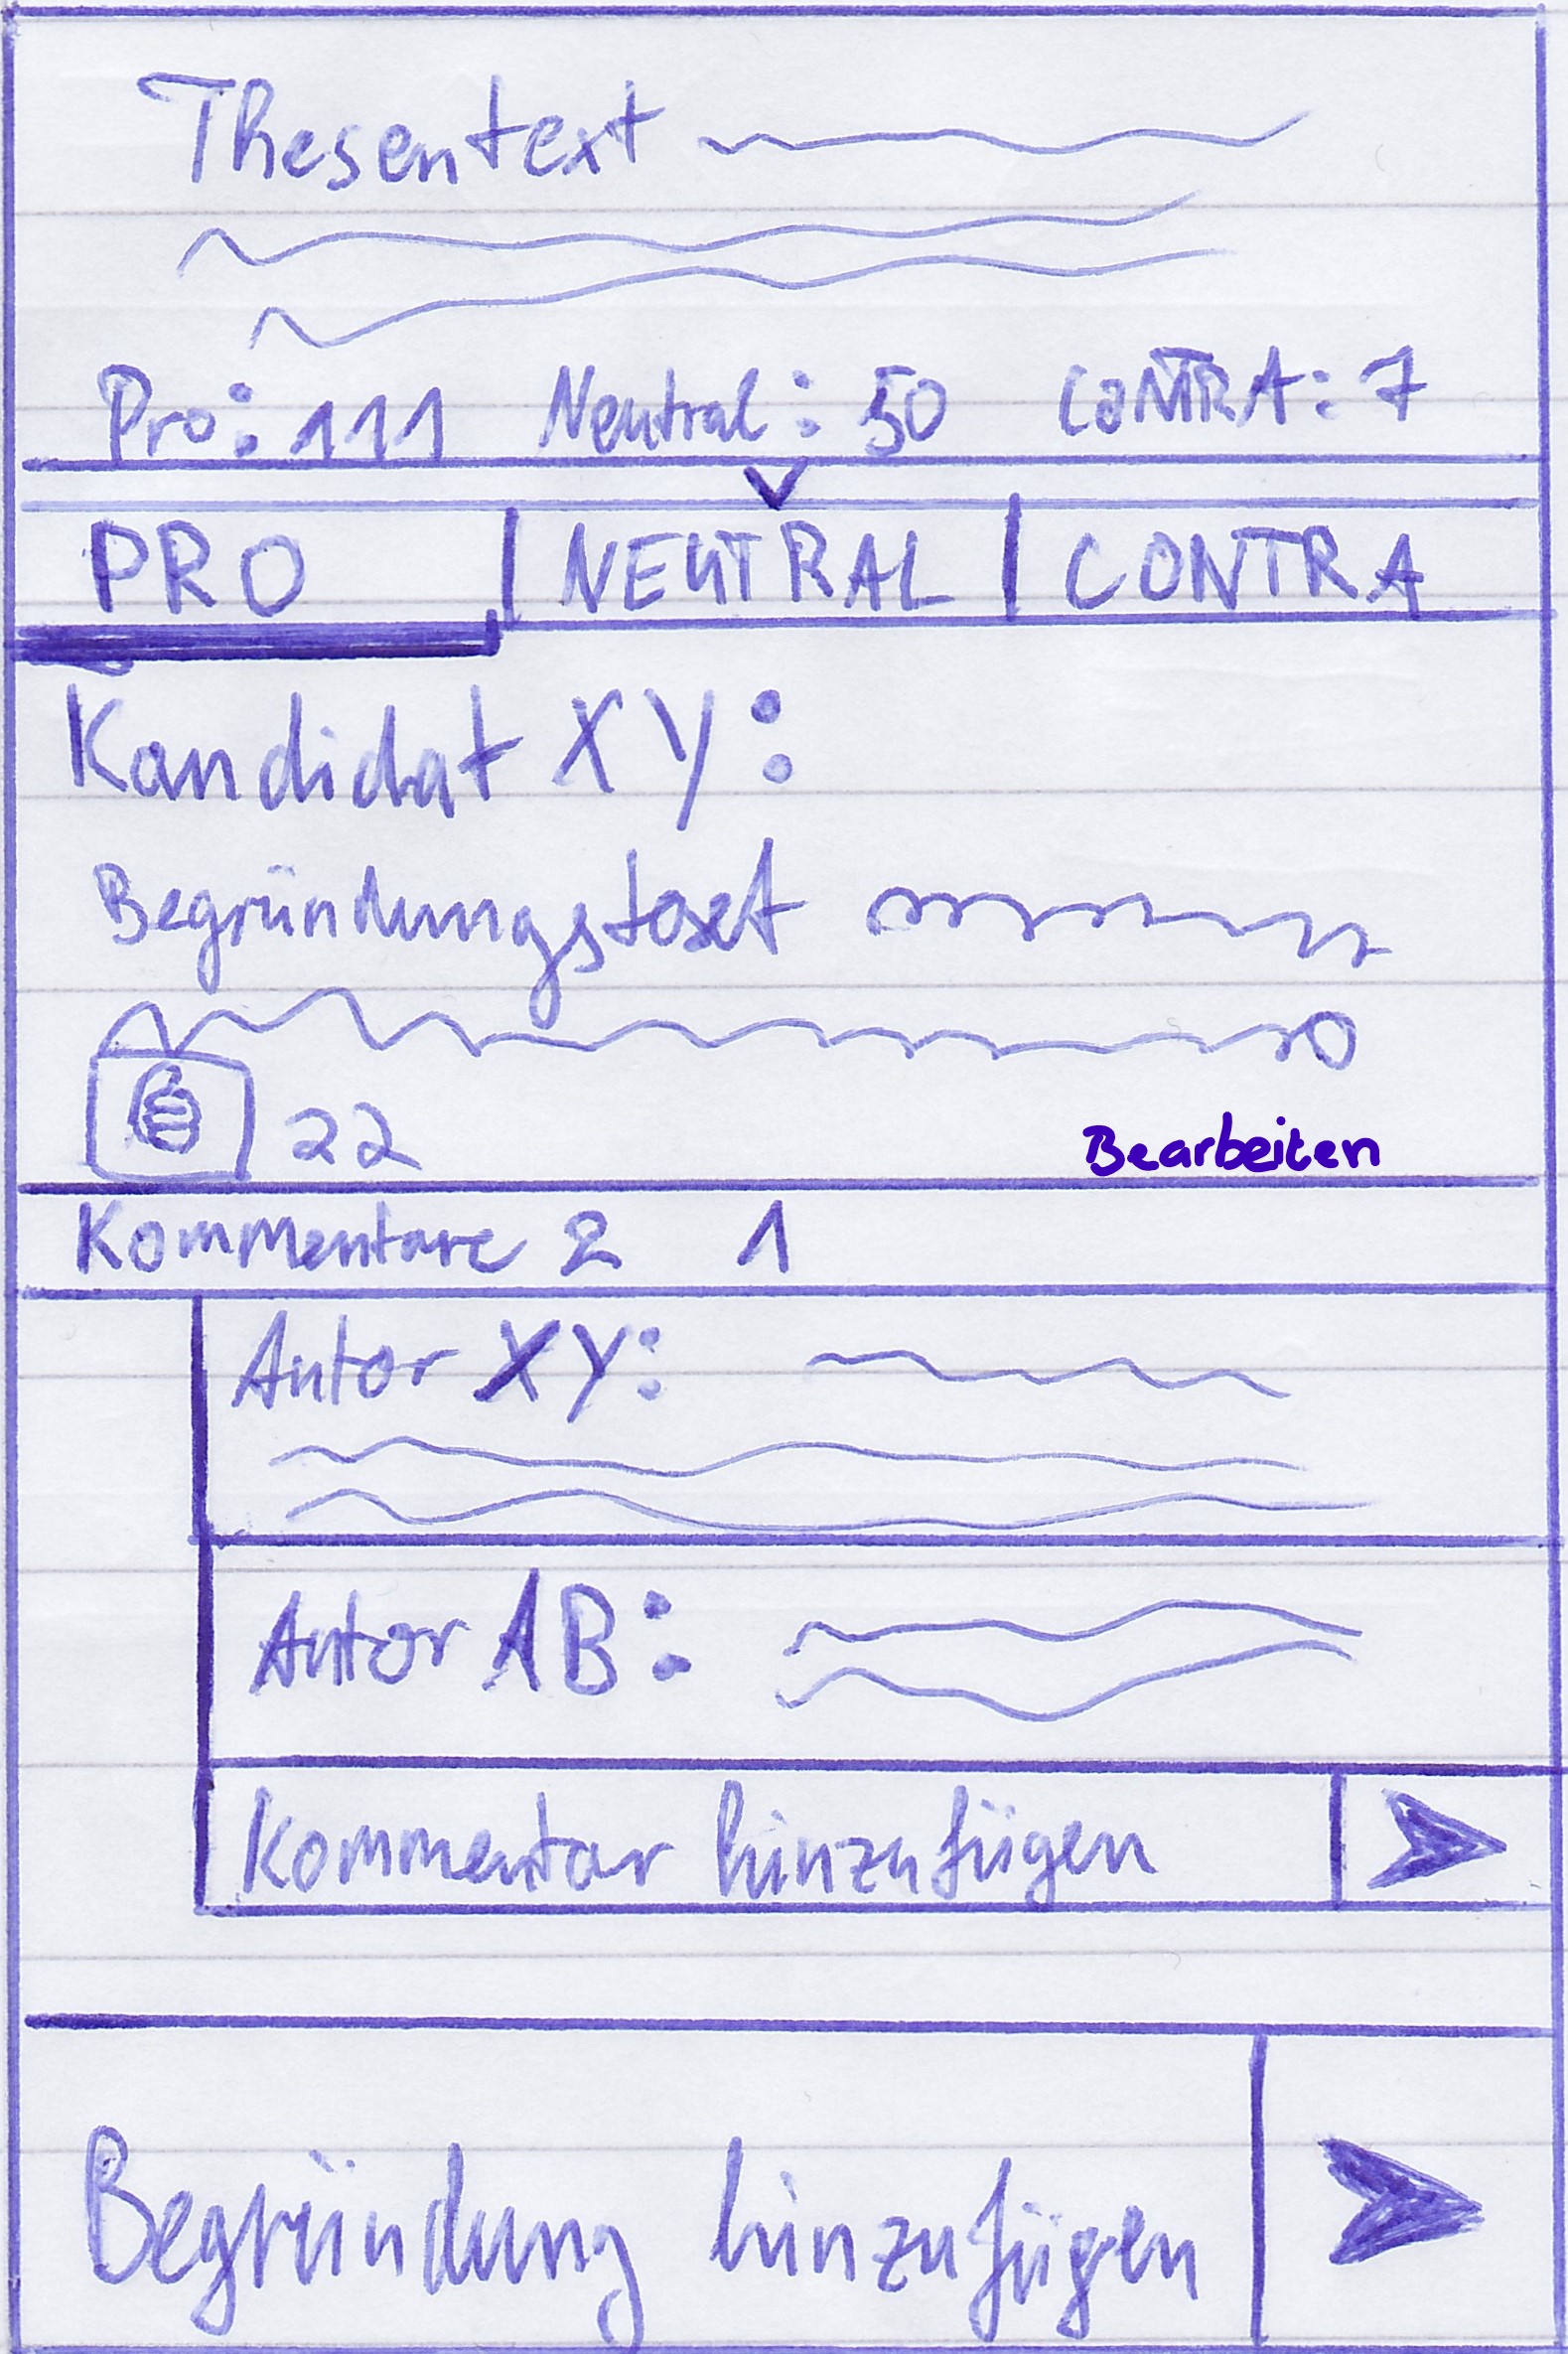 Thesentext
Pro: 111 Neutral: 50 CONTRA: 7
PRO NEUTRAL CONTRA
Kandidat XY:
Begründungstext
22 Bearbeiten
Kommentare 2 1
Autor XY:
Autor AB:
Kommentar hinzufügen
Begründung hinzufügen